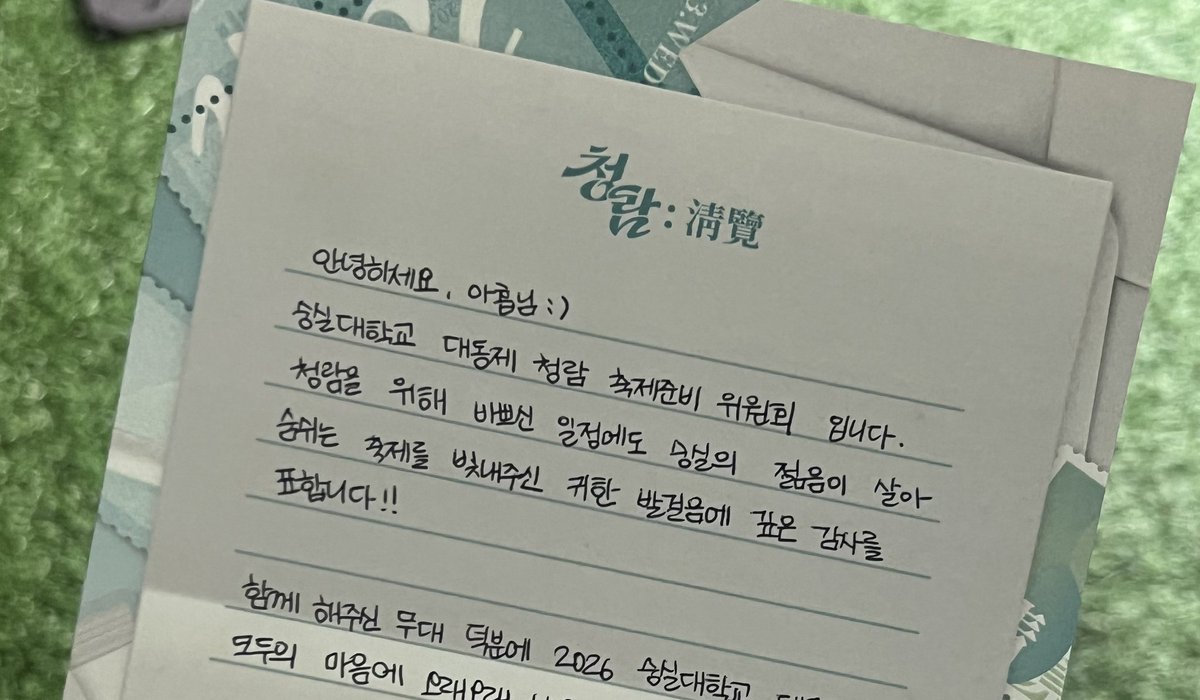 3 WED
청람 : 淸覽
안녕하세요, 아홉님 :)
숭실대학교 대동제 청람 축제준비 위원회 입니다.
청람을 위해 바쁘신 일정에도 숭실의 젊음이 살아
숨쉬는 축제를 빛내주신 귀한 발걸음에 깊은 감사를
표합니다!!
함께 해주신 무대 덕분에 2026 숭실대학교
모두의 마음에 오래오래